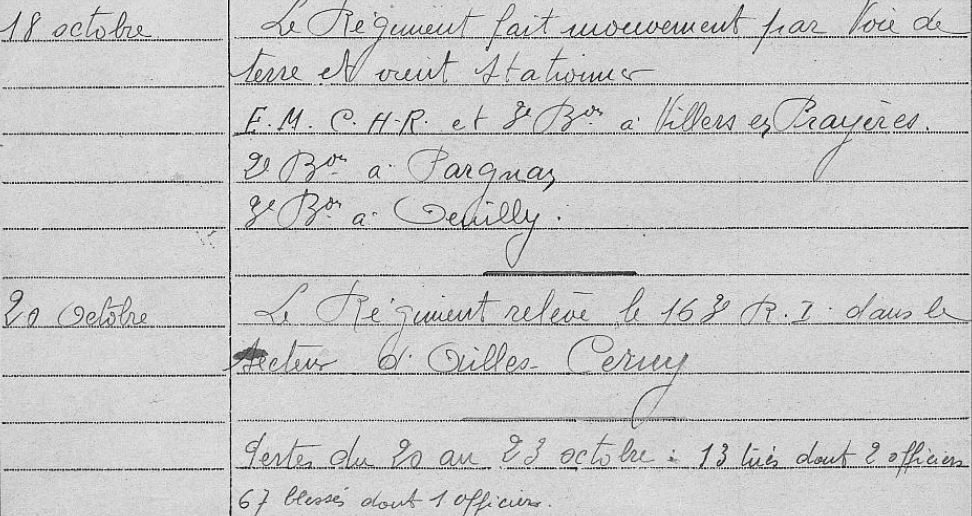 18 octobre Le Régiment fait mouvement par Voie de
terre et vient stationner
E.M. C.H-R. et 3e Bon à Villers en Prayères.
2e Bon à Pargnan
3e Bon à Oeuilly.
20 Octobre Le Régiment relève le 163e R.I. dans le
secteur d'Ailles-Cerny
Pertes du 20 au 23 octobre : 13 tués dont 2 officiers
67 blessés dont 1 officiers.